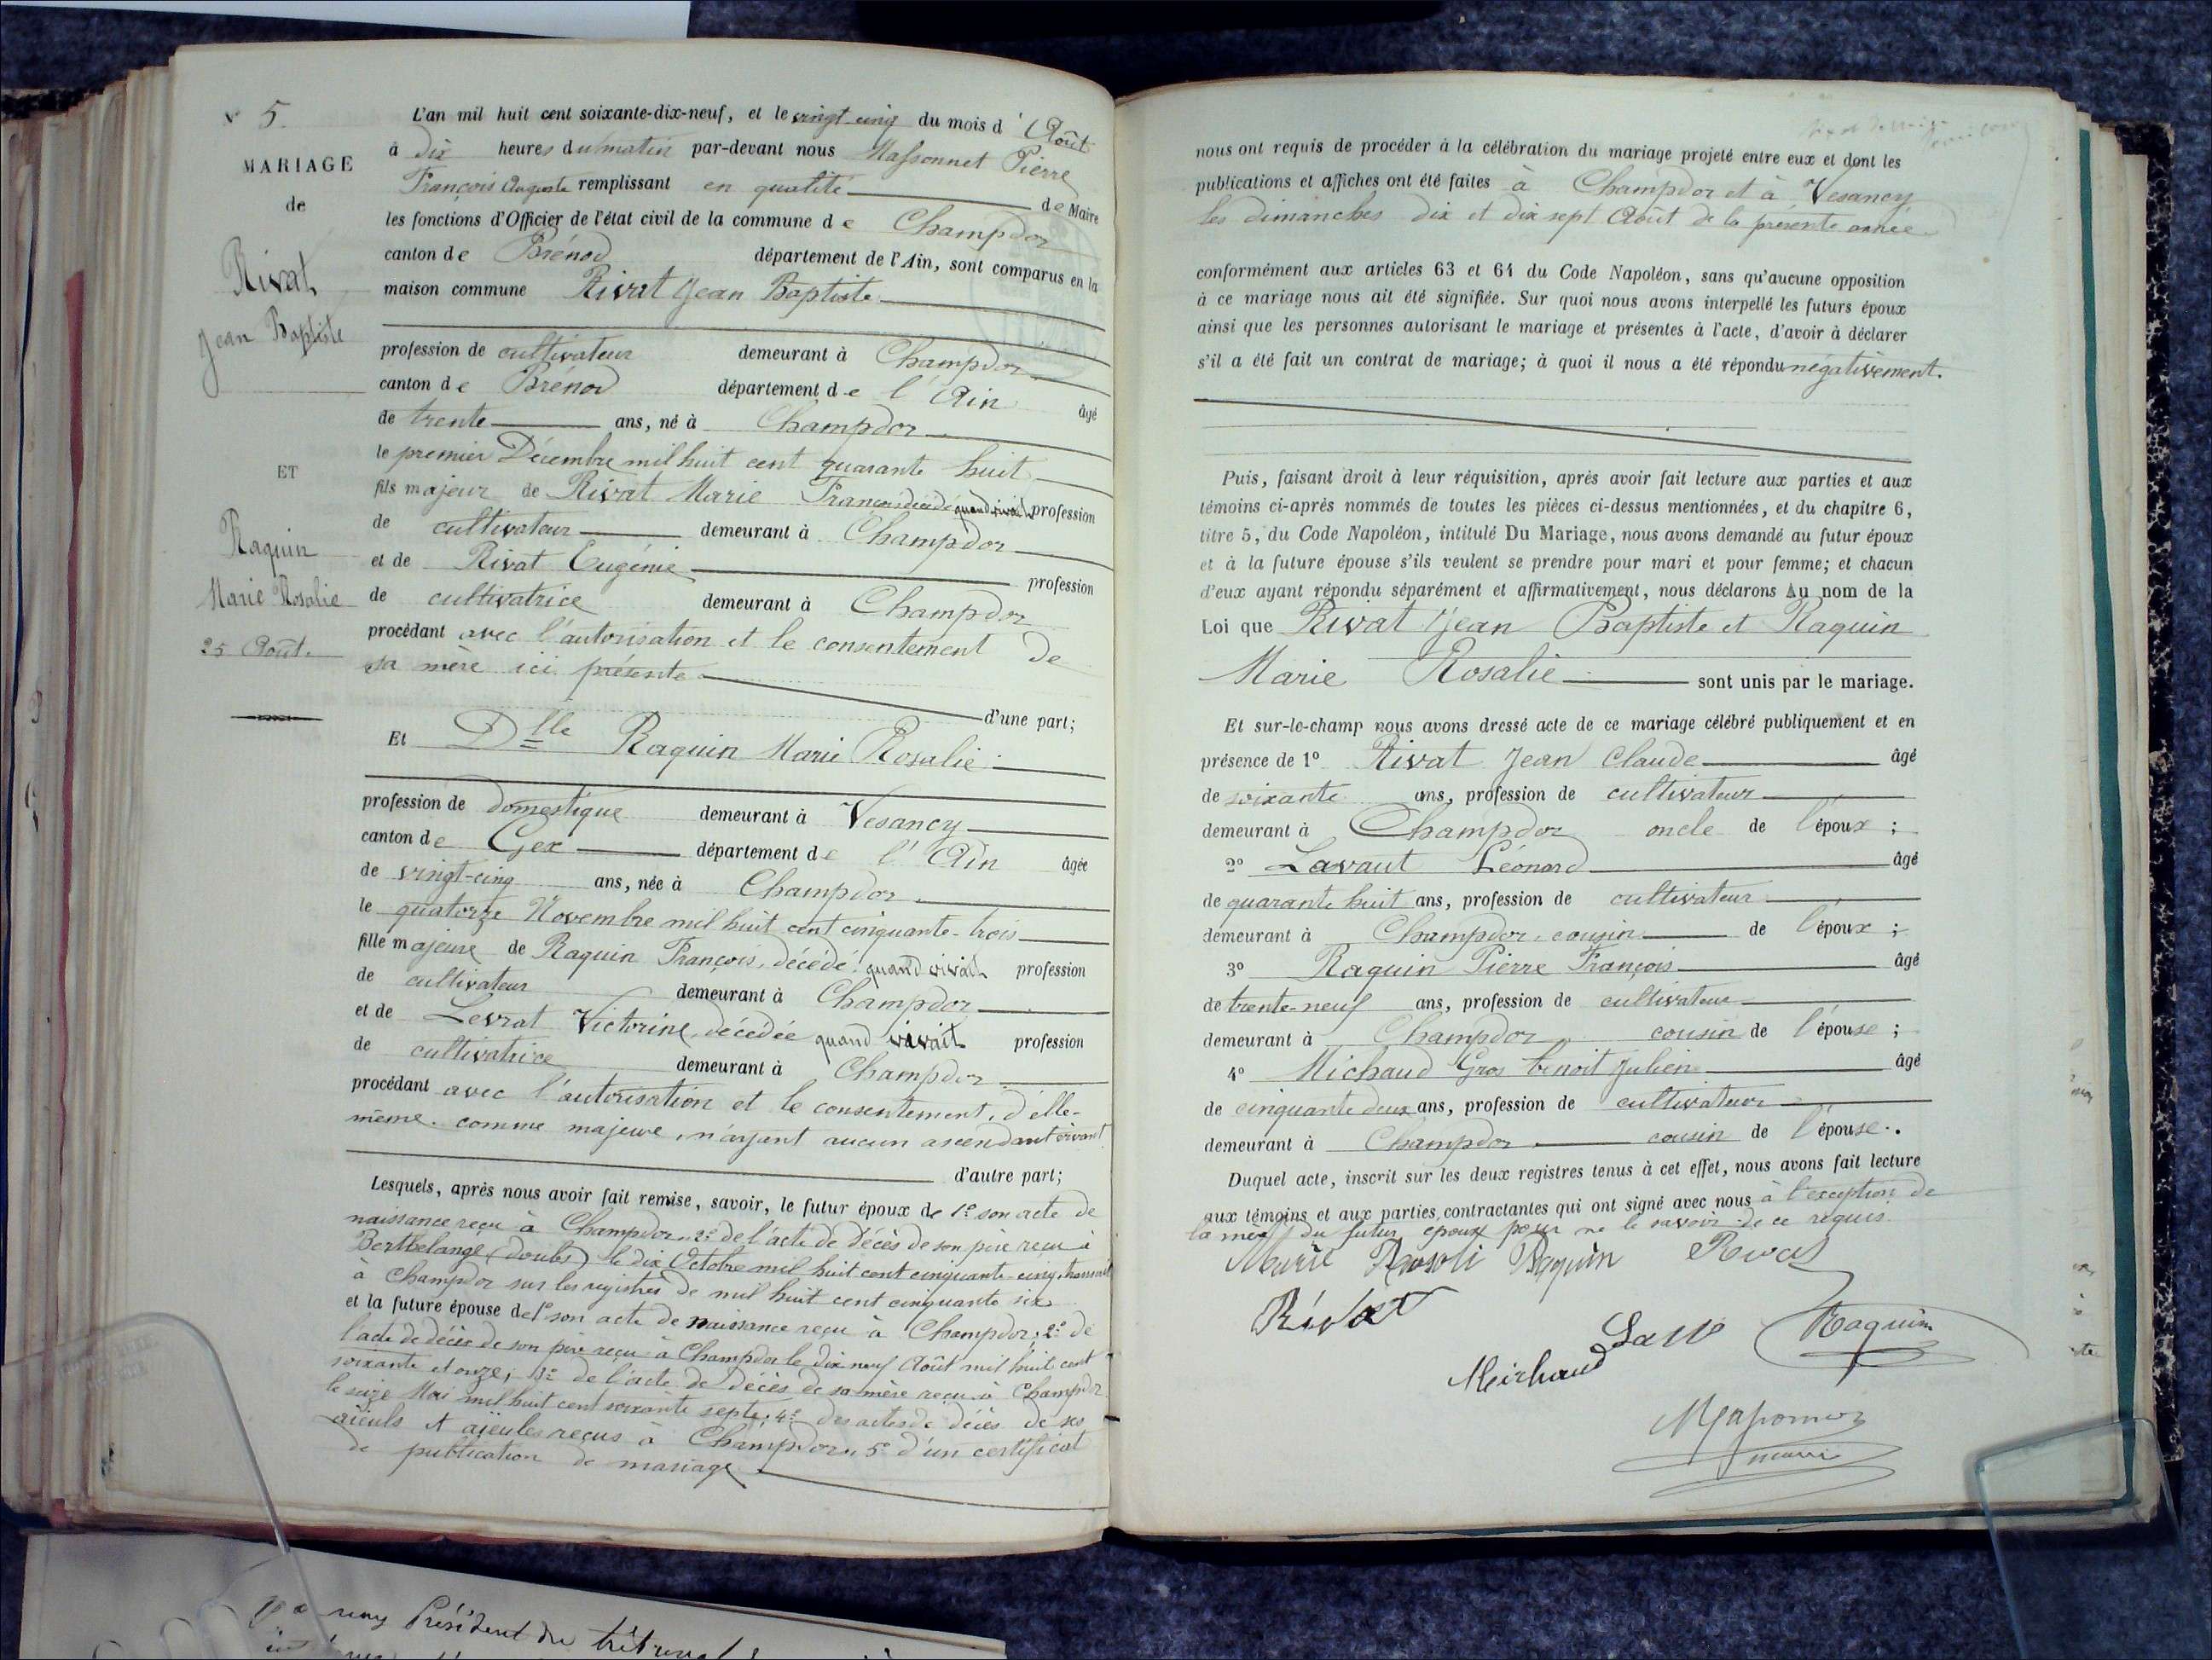 5.
MARIAGE
de
Rivat
Jean Baptiste
ET
Raquin
Marie Rosalie
25 Août.
L'an mil huit cent soixante-dix-neuf, et le vingt cinq du mois d'Août
à dix heures du matin par-devant nous Massonnet Pierre
François Auguste remplissant en qualité de Maire
les fonctions d'Officier de l'état civil de la commune de Champdor
canton de Brénod département de l'Ain, sont comparus en la
maison commune Rivat Jean Baptiste
profession de cultivateur demeurant à Champdor
canton de Brénod département de l'Ain âgé
de trente ans, né à Champdor
le premier Décembre mil huit cent quarante huit
fils majeur de Rivat Marie François décédé quand vivait profession
de cultivateur demeurant à Champdor
et de Rivat Eugénie profession
de cultivatrice demeurant à Champdor
procédant avec l'autorisation et le consentement de
sa mère ici présente
d'une part;
Et Dlle Raquin Marie Rosalie
profession de domestique demeurant à Vesancy
canton de Gex département de l'Ain âgée
de vingt-cinq ans, née à Champdor
le quatorze Novembre mil huit cent cinquante-trois
fille majeure de Raquin François, décédé quand vivait profession
de cultivateur demeurant à Champdor
et de Levrat Victorine, décédée quand vivait profession
de cultivatrice demeurant à Champdor
procédant avec l'autorisation et le consentement, d'elle-
même comme majeure, n'ayant aucun ascendant vivant
d'autre part;
Lesquels, après nous avoir fait remise, savoir, le futur époux de 1º son acte de
naissance reçu à Champdor, 2º de l'acte de décès de son père reçu à
Berthelange (Doubs) le dix Octobre mil huit cent cinquante-cinq, transcrit
à Champdor sur les registres de mil huit cent cinquante six
et la future épouse de 1º son acte de naissance reçu à Champdor; 2º de
l'acte de décès de son père reçu à Champdor le dix neuf Août mil huit cent
soixante et onze; 3º de l'acte de décès de sa mère reçu à Champdor
le seize Mai mil huit cent soixante sept; 4º des actes de décès de ses
aïeuls et aïeules reçus à Champdor, 5º d'un certificat
de publication de mariage
nous ont requis de procéder à la célébration du mariage projeté entre eux et dont les
publications et affiches ont été faites à Champdor et à Vesancy
les dimanches dix et dix sept Août de la présente année
conformément aux articles 63 et 64 du Code Napoléon, sans qu'aucune opposition
à ce mariage nous ait été signifiée. Sur quoi nous avons interpellé les futurs époux
ainsi que les personnes autorisant le mariage et présentes à l'acte, d'avoir à déclarer
s'il a été fait un contrat de mariage; à quoi il nous a été répondu négativement.
Puis, faisant droit à leur réquisition, après avoir fait lecture aux parties et aux
témoins ci-après nommés de toutes les pièces ci-dessus mentionnées, et du chapitre 6,
titre 5, du Code Napoléon, intitulé Du Mariage, nous avons demandé au futur époux
et à la future épouse s'ils veulent se prendre pour mari et pour femme; et chacun
d'eux ayant répondu séparément et affirmativement, nous déclarons Au nom de la
Loi que Rivat Jean Baptiste et Raquin
Marie Rosalie sont unis par le mariage.
Et sur-le-champ nous avons dressé acte de ce mariage célébré publiquement et en
présence de 1º Rivat Jean Claude âgé
de soixante ans, profession de cultivateur
demeurant à Champdor oncle de l'époux;
2º Lavaut Léonard âgé
de quarante huit ans, profession de cultivateur
demeurant à Champdor, cousin de l'époux;
3º Raquin Pierre François âgé
de trente-neuf ans, profession de cultivateur
demeurant à Champdor cousin de l'épouse;
4º Michaud Gros benoit Julien âgé
de cinquante deux ans, profession de cultivateur
demeurant à Champdor cousin de l'épouse.
Duquel acte, inscrit sur les deux registres tenus à cet effet, nous avons fait lecture
aux témoins et aux parties contractantes qui ont signé avec nous à l'exception de
la mère du futur époux pour ne le savoir de ce requis.
Marie Rosoli Raquin Rivat
Rivat
Raquin
Meichaud
maire
Président du